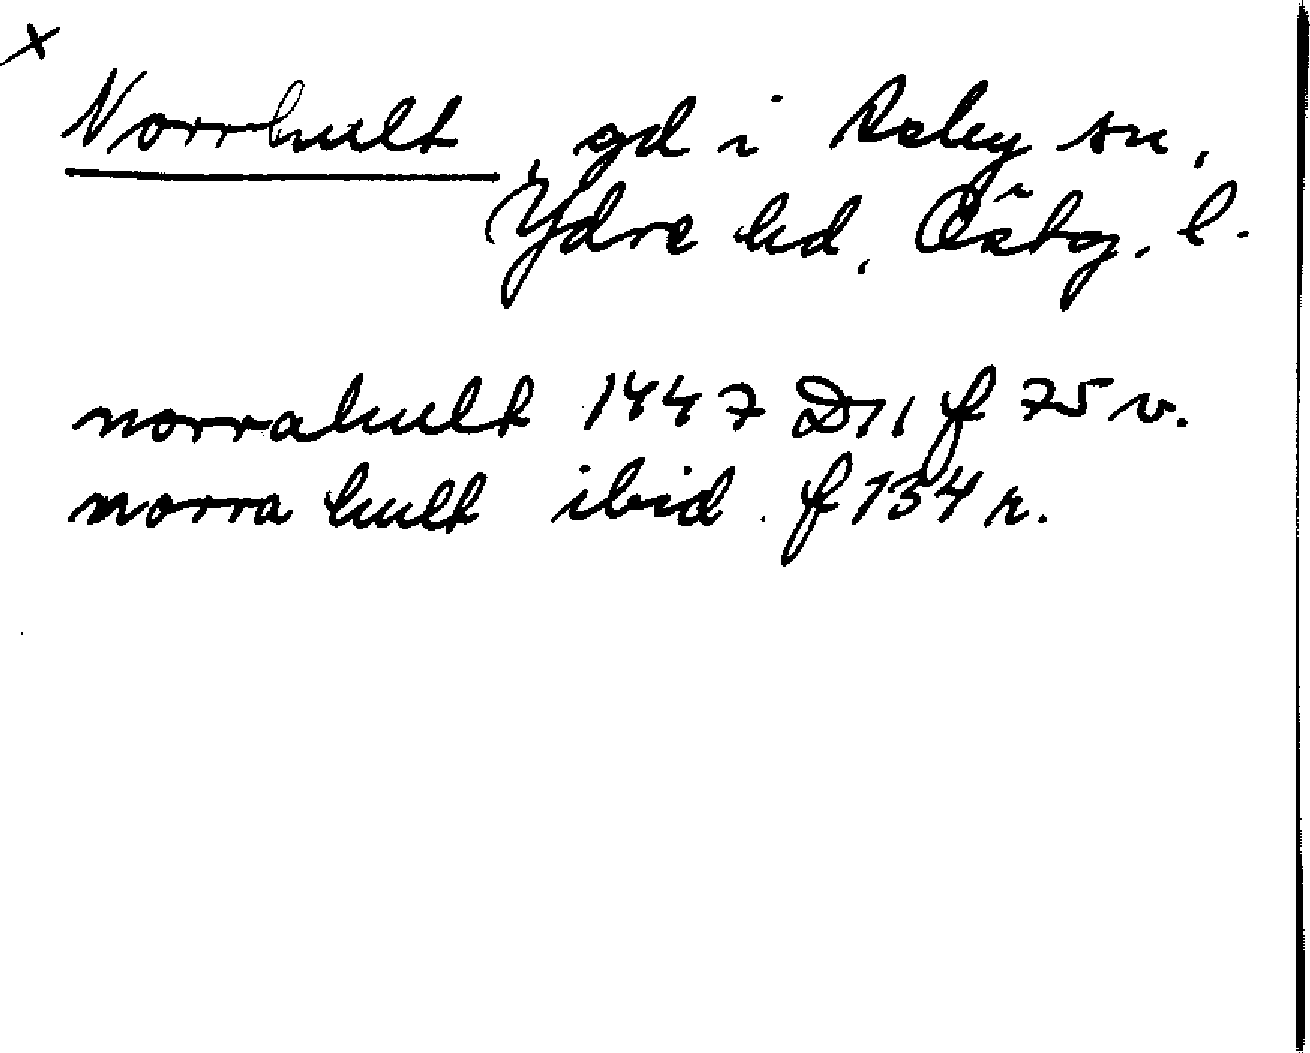 x
Norrhult, gd i Asby sn,
Ydre hd, Östg. l.
norrahult 1447 D11 f 75 v.
norra hult ibid. f 134 r.